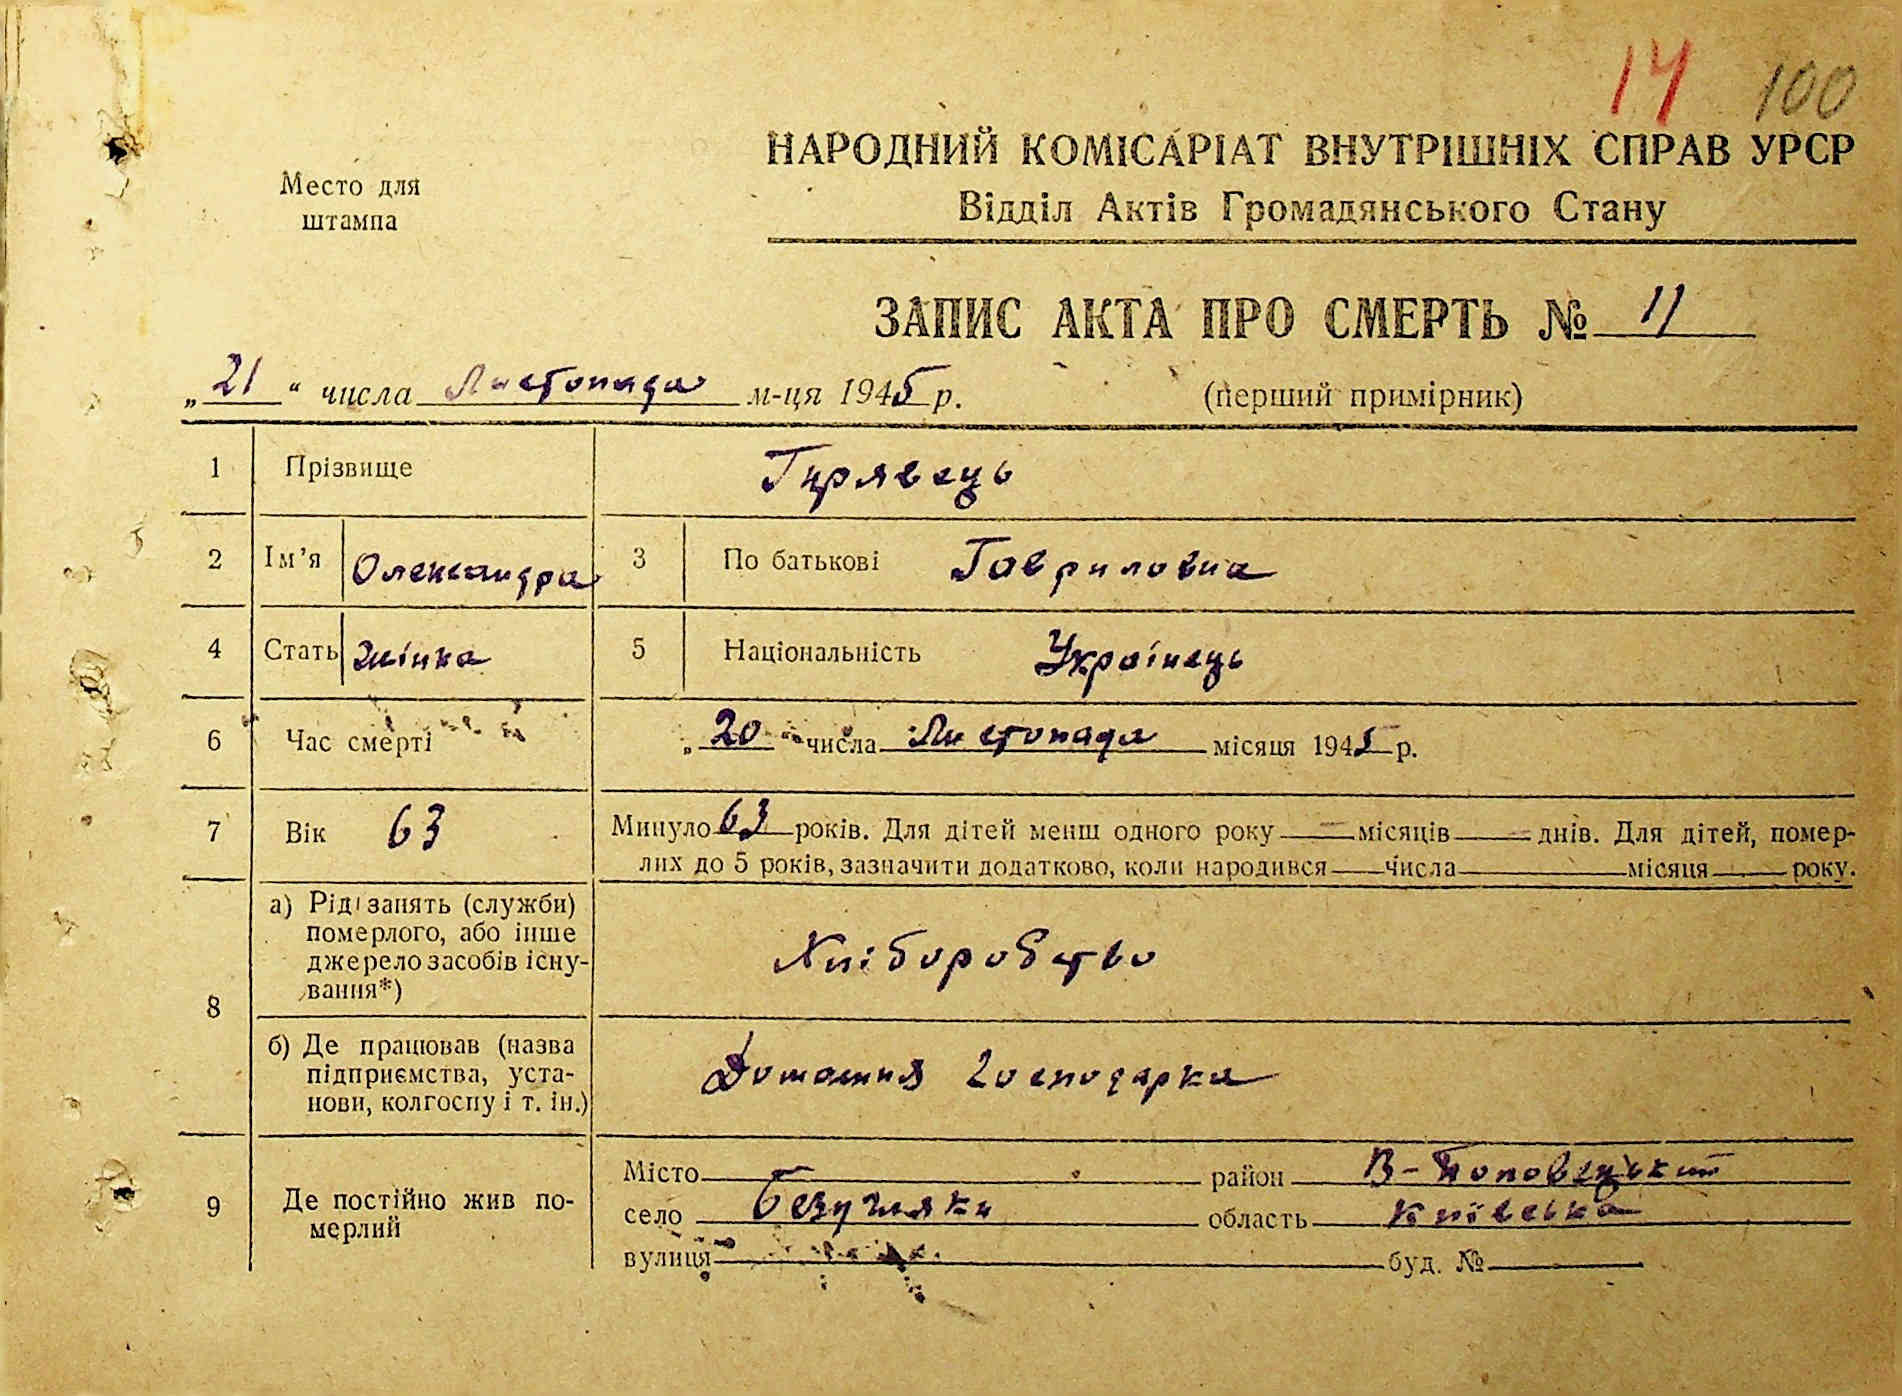 14 100
НАРОДНИЙ КОМІСАРІАТ ВНУТРІШНІХ СПРАВ УРСР
Место для
штампа
Відділ Актів Громадянського Стану
ЗАПИС АКТА ПРО СМЕРТЬ № 11
„21“ числа Листопада м-ця 1945 р. (перший примірник)
1 Прізвище Гирявець
2 Ім’я Олександра 3 По батькові Гавриловна
4 Стать жінка 5 Національність Українець
6 Час смерті „20“ числа Листопада місяця 1945 р.
7 Вік 63 Минуло 63 років. Для дітей менш одного року — місяців — днів. Для дітей, помер-
лих до 5 років, зазначити додатково, коли народився числа місяця року.
8 а) Рід занять (служби)
померлого, або інше
джерело засобів існу-
вання*)
Хліборобство
б) Де працював (назва
підприємства, уста-
нови, колгоспу і т. ін.)
Домашня господарка
9 Де постійно жив по-
мерлий
Місто район В-Половецький
село Безугляки область Київська
вулиця буд. №